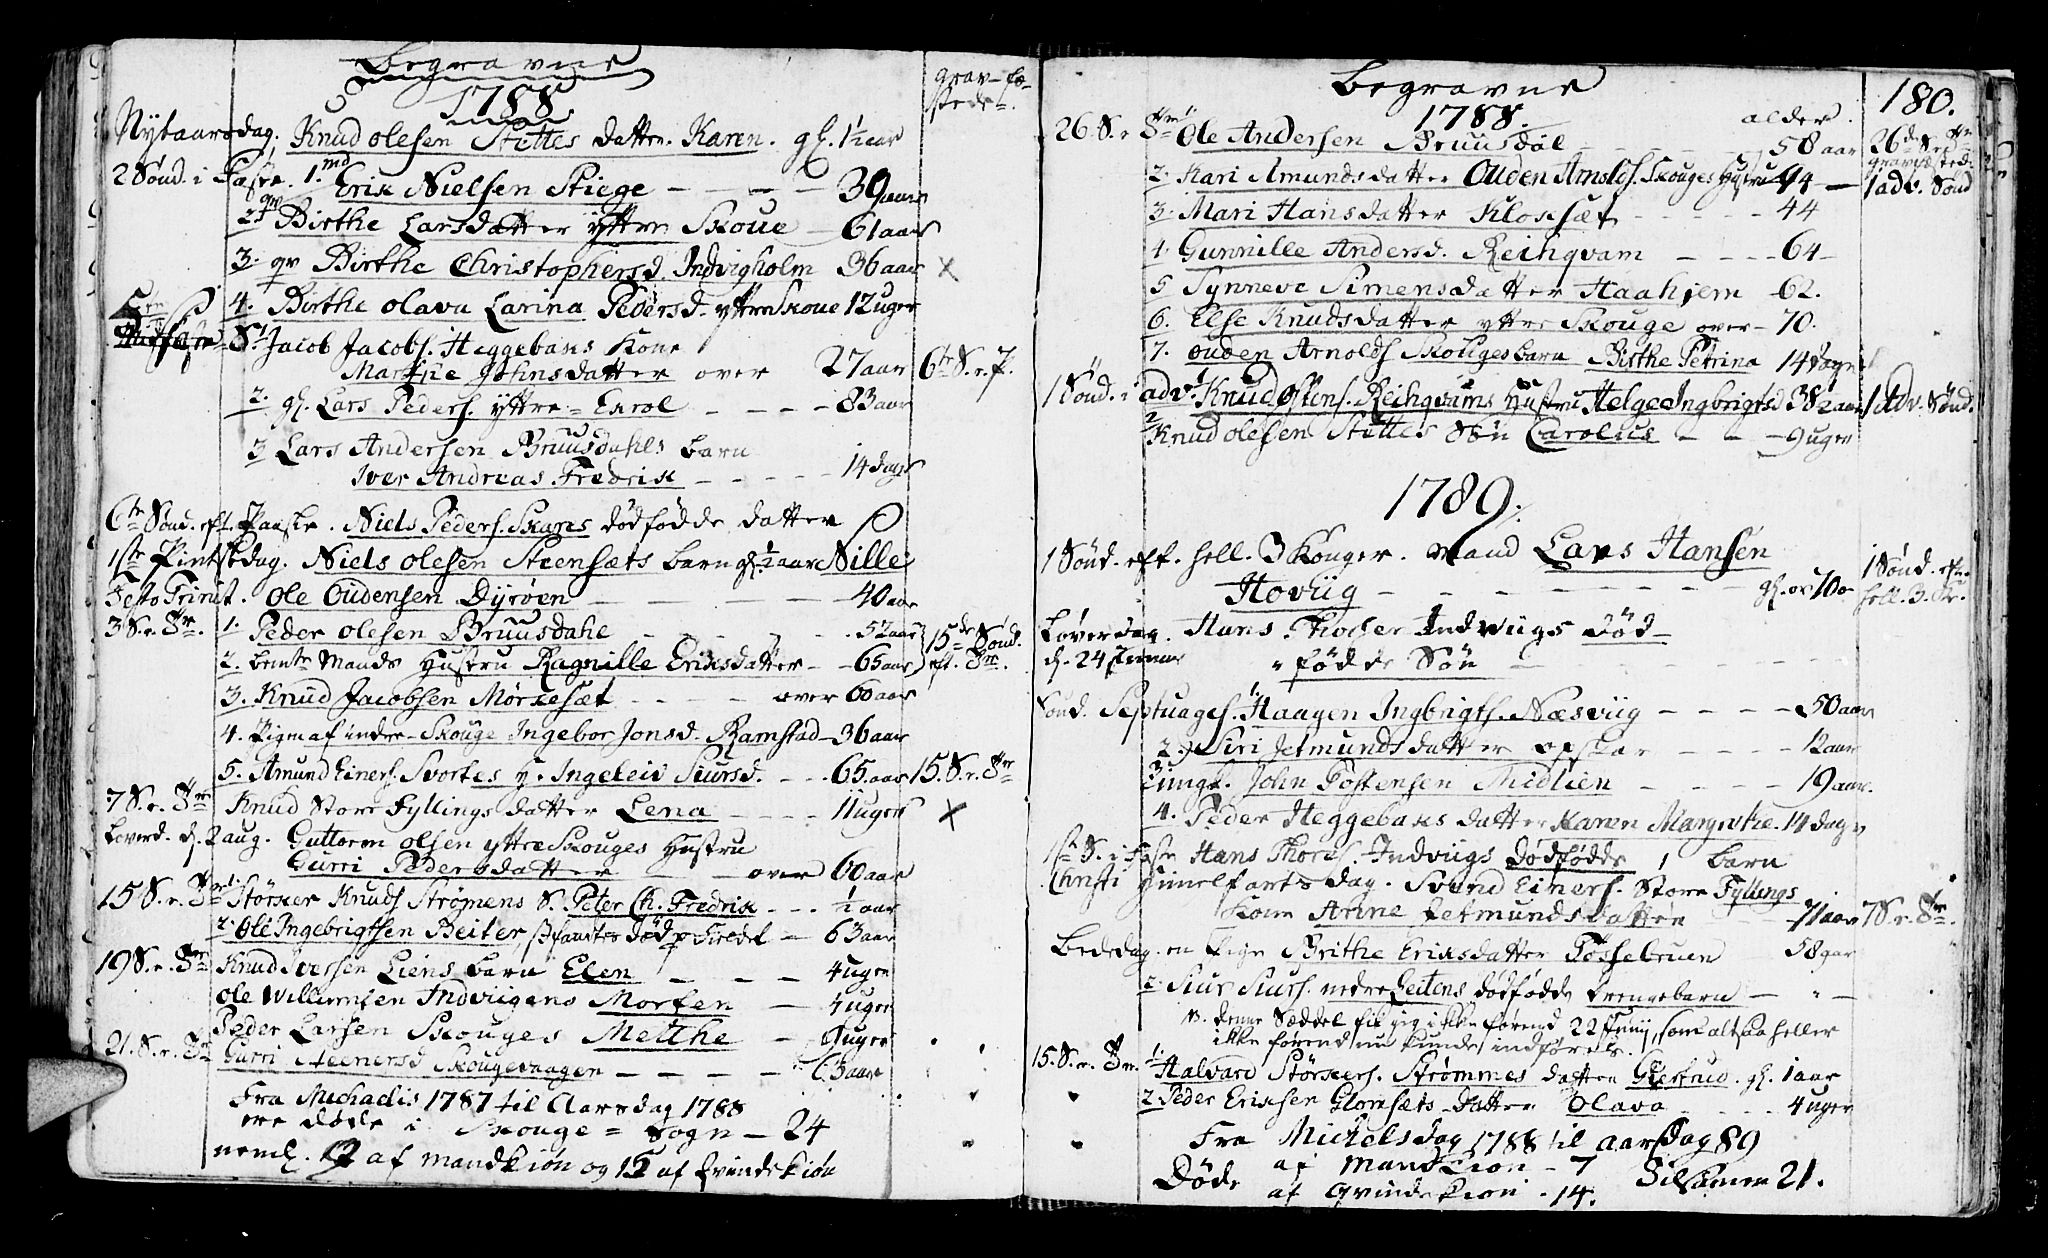 Begravne
1788
grav-fæ-
stede.
Nytaarsdag. Knud Olesen Stettes datter. Karen. gl. 1½ aar
2 Sønd. i Faste. 1. Erik Nielsen Stiege - - - - 39 aar
2. Birthe Larsdatter ÿttre Skoue - 61 aar
3. qv Birthe Christophersd. Indvigholm 36 aar x
4. Birthe Olava Larina Pedersd. yttre Skoue 12 uger
1 Jacob Jacobs. Heggebaks Kone
Marthe Johnsdatter over 27 aar 6te S. e. P.
2. gl. Lars Peders. ÿttre = Ekrol - - - - 83 aar
3 Lars Andersen Bruusdahls barn
Iver Andreas Fredrik - - - - - 14 dage
6te Sønd. eft. Paaske. Niels Peders. Skares dødfødde datter
1ste Pintsedag. Niels Olesen Steensæts barn gl. ½ aar Nille
Festo Trinit. Ole Oudensen Dyrøen - - - - 40 aar
3 S. e. Tr. 1. Peder Olesen Bruusdahl - - - - 52 aar 15de Sønd.
2. bemte Mands Hustru Ragnille Eriksdatter - - 65 aar eft. Tr.
3. Knud Jacobsen Mørkesæt - - - over 60 aar
4. Pigen af indre Skouge Ingebor Jonsd. Ramstad - 36 aar
5. Amund Einers. Svortes H. Ingeleiv Siursd. - - 65 aar 15. S. e. Tr
7 S. e. Tr Knud Store Fyllings datter Lena - - - - 11 uger x
Løverd. d. 2 aug. Guttorm Olsen yttre Skouges Hustru
Gurri Pedersdatter - - over 60 aar
15 S. e. Tr 1. Størker Knuds. Strømens S. Peter Ch. Fredrik - - - ½ aar
2. Ole Ingebrigtsen Beiter død p Fieldet - 63 aar
19 S. e. Tr Knud Iversen Liens barn Elen - - - - 4 uger
Ole Willumsen Indviigens Morten - 4 uger
Peder Larsen Skouges Metthe - 9 uger
21. S. e. Tr Gurri Steenersd Skougevaagen - - - - - 63 aar
Fra Michaelis 1787 til Aarsdag 1788
ere døde i Skouge = Sogn - 24
neml. 9 af mandkiøn og 15 af Qvindekiøn
Begravne
1788.
alder.
180.
26. S. e. Tr 1 Ole Andersen Bruusdal - - - - 58 aar 26de S. e. Tr
gravfæsted.
2. Kari Amundsdatter Ouden Arnolds. Skouges Hustru 44 - 1 adv. Sønd
3. Mari Hansdatter Kloksæt - - - - - 44
4. Gunnille Andersd. Reihqvam - - - - 64 -
5 Synneve Simensdatter Haahiem - 62.
6. Else Knudsdatter yttre Skouge over - 70.
7. Ouden Arnolds Skouges barn Birthe Petrina 14 dage
1 Sønd. i adv. 1. Knud Østens. Reihqvams Hustru Helge Ingbrigtsd 38½ aar 1 Adv. Sønd.
2 Knud Olesen Stettes Søn Carolus - - - 9 uger
1789.
1 Sønd. eft. hell. 3 Konger. Mand Lars Hansen
Hoviig - - - - - - - - gl. ov 70 1 Sønd. eft.
hell. 3. K.
Løverdag. Hans Thoser Indviigs død-
d. 24 Januar fødde Søn - - - - - - -
Sønd. Septuages. 1. Haagen Ingbrigts. Næsviig - - - - - 50 aar
2. Siri Jetmundsdatter Opskar - - - - 12 aar
3. ungk. John Tostensen Midlien - - - - - 19 aar.
4. Peder Heggebaks datter Karen Margrethe. 14 dage
1ste S. i Faste Hans Thores. Indviigs dødfødde 1 barn
Christi Himelfarts dag. Svend Einers. Store Fyllings
Kone Anne Jetmundsdatter 71 aar 7 S. e. Tr.
Bededag. en Pige Brithe Eriksdatter Tøssebruen 58 aar
2. Siur Siurs. nedre Leitens dødfødde drengebarn - " -
N. denne Sæddel fik jeg ikke førend 22 Junij, som altsaa heller
ikke førend nu kunde indføres.
15. S. e. Tr. 1. Halvard Størkers. Strømmes datter Giertrud. gl. 1 aar
2 Peder Eriksen Glomsæts datter Olava - - - - 4 uger
Fra Michelsdag 1788 til aarsdag 89
Døde af Mandkiøn - 7 Tilsamen 21.
af Qvindekiøn - 14.